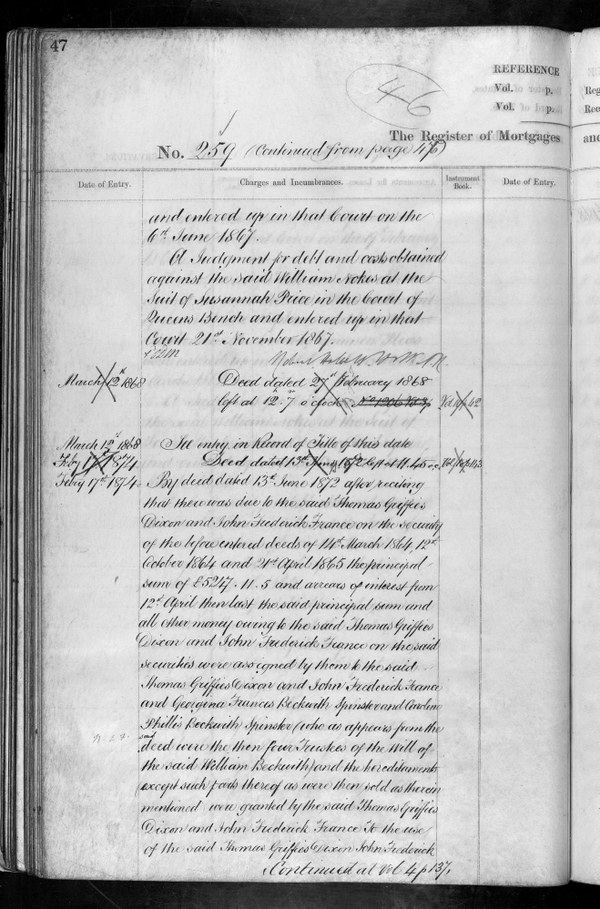 47
46
REFERENCE
Vol. p.
Vol. p.
The Register of Mortgages
No. 259 (Continued from page 46)
Date of Entry.
Charges and Incumbrances.
Instrument Book.
Date of Entry.
and entered up in that Court on the
6th June 1867.
A Judgment for debt and costs obtained
against the said William Nokes at the
Suit of Susannah Price in the Court of
Queens Bench and entered up in that
Court 21st November 1867.
March 12th 1868
Deed dated 27th February 1868
left at 12.7 o'clock
March 12th 1868
See entry in Record of Title of this date
Feby 17th 1874
Deed dated 13th June 1872 left at 11.45
Feby 17th 1874
By deed dated 13th June 1872 after reciting
that there was due to the said Thomas Griffies
Dixon and John Frederick France on the security
of the before entered deeds of 14th March 1864, 12th
October 1864 and 21st April 1865 the principal
sum of £5247.11.5 and arrears of interest from
12th April then last the said principal sum and
all other money owing to the said Thomas Griffies
Dixon and John Frederick France on the said
securities were assigned by them to the said
Thomas Griffies Dixon and John Frederick France
and Georgena Frances Beckwith Spinster and Caroline
Phillis Beckwith Spinster (who as appears from the
said
deed were the then four Trustees of the Will of
the said William Beckwith) and the hereditaments
(except such parts thereof as were then sold as therein
mentioned were granted by the said Thomas Griffies
Dixon and John Frederick France To the use
of the said Thomas Griffies Dixon John Frederick
Continued at Vol 4 p 137,